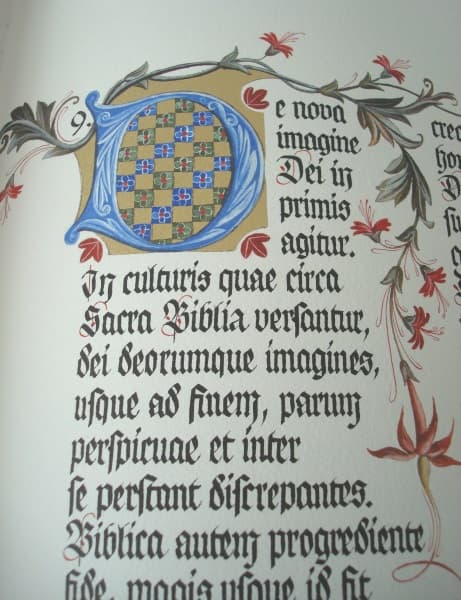 9. De nova
imagine
Dei in
primis
agitur.
In culturis quae circa
Sacra Biblia versantur,
dei deorumque imagines,
usque ad finem, parum
perspicuae et inter
se perstant discrepantes.
Biblica autem progrediente
fide, magis usque id fit